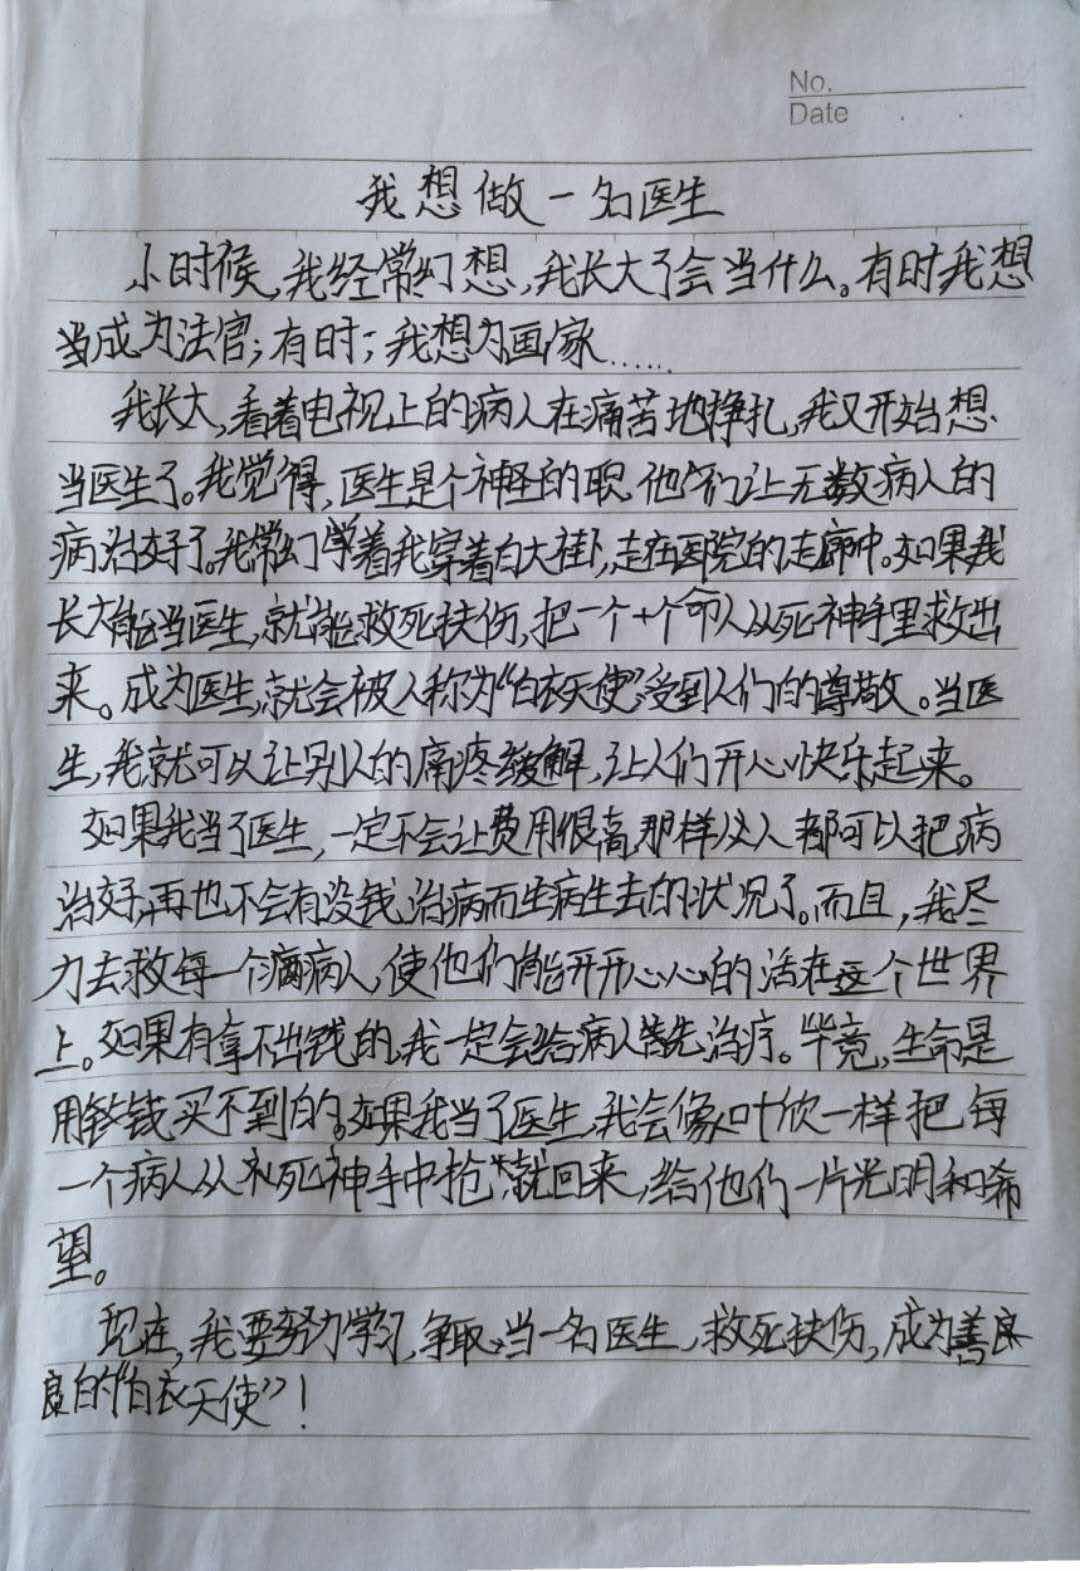 No.
Date
我想做一名医生
小时候,我经常幻想,我长大了会当什么。有时我想
当成为法官;有时;我想为画家……
我长大,看着电视上的病人在痛苦地挣扎,我又开始想
当医生了。我觉得,医生是个神圣的职,他们让无数病人的
病治好了。我常幻学着我穿着白大褂,走在医院的走廊中。如果我
长大能当医生,就能救死扶伤,把一个个命人从死神手里救出
来。成为医生,就会被人称为“白衣天使”,受到人们的尊敬。当医
生,我就可以让别人的痛疼缓解,让人们开心快乐起来。
如果我当了医生,一定不会让费用很高,那样人人都可以把病
治好,再也不会有没钱治病而生病生去的状况了。而且,我尽
力去救每一个病人,使他们能开开心心的活在这个世界
上。如果有拿不出钱的,我一定会给病人先治疗。毕竟,生命是
用钱买不到的。如果我当了医生,我会像叶欣一样把每
一个病人从死神手中抢就回来,给他们一片光明和希
望。
现在,我要努力学习,争取当一名医生,救死扶伤,成为善良
良的“白衣天使”!